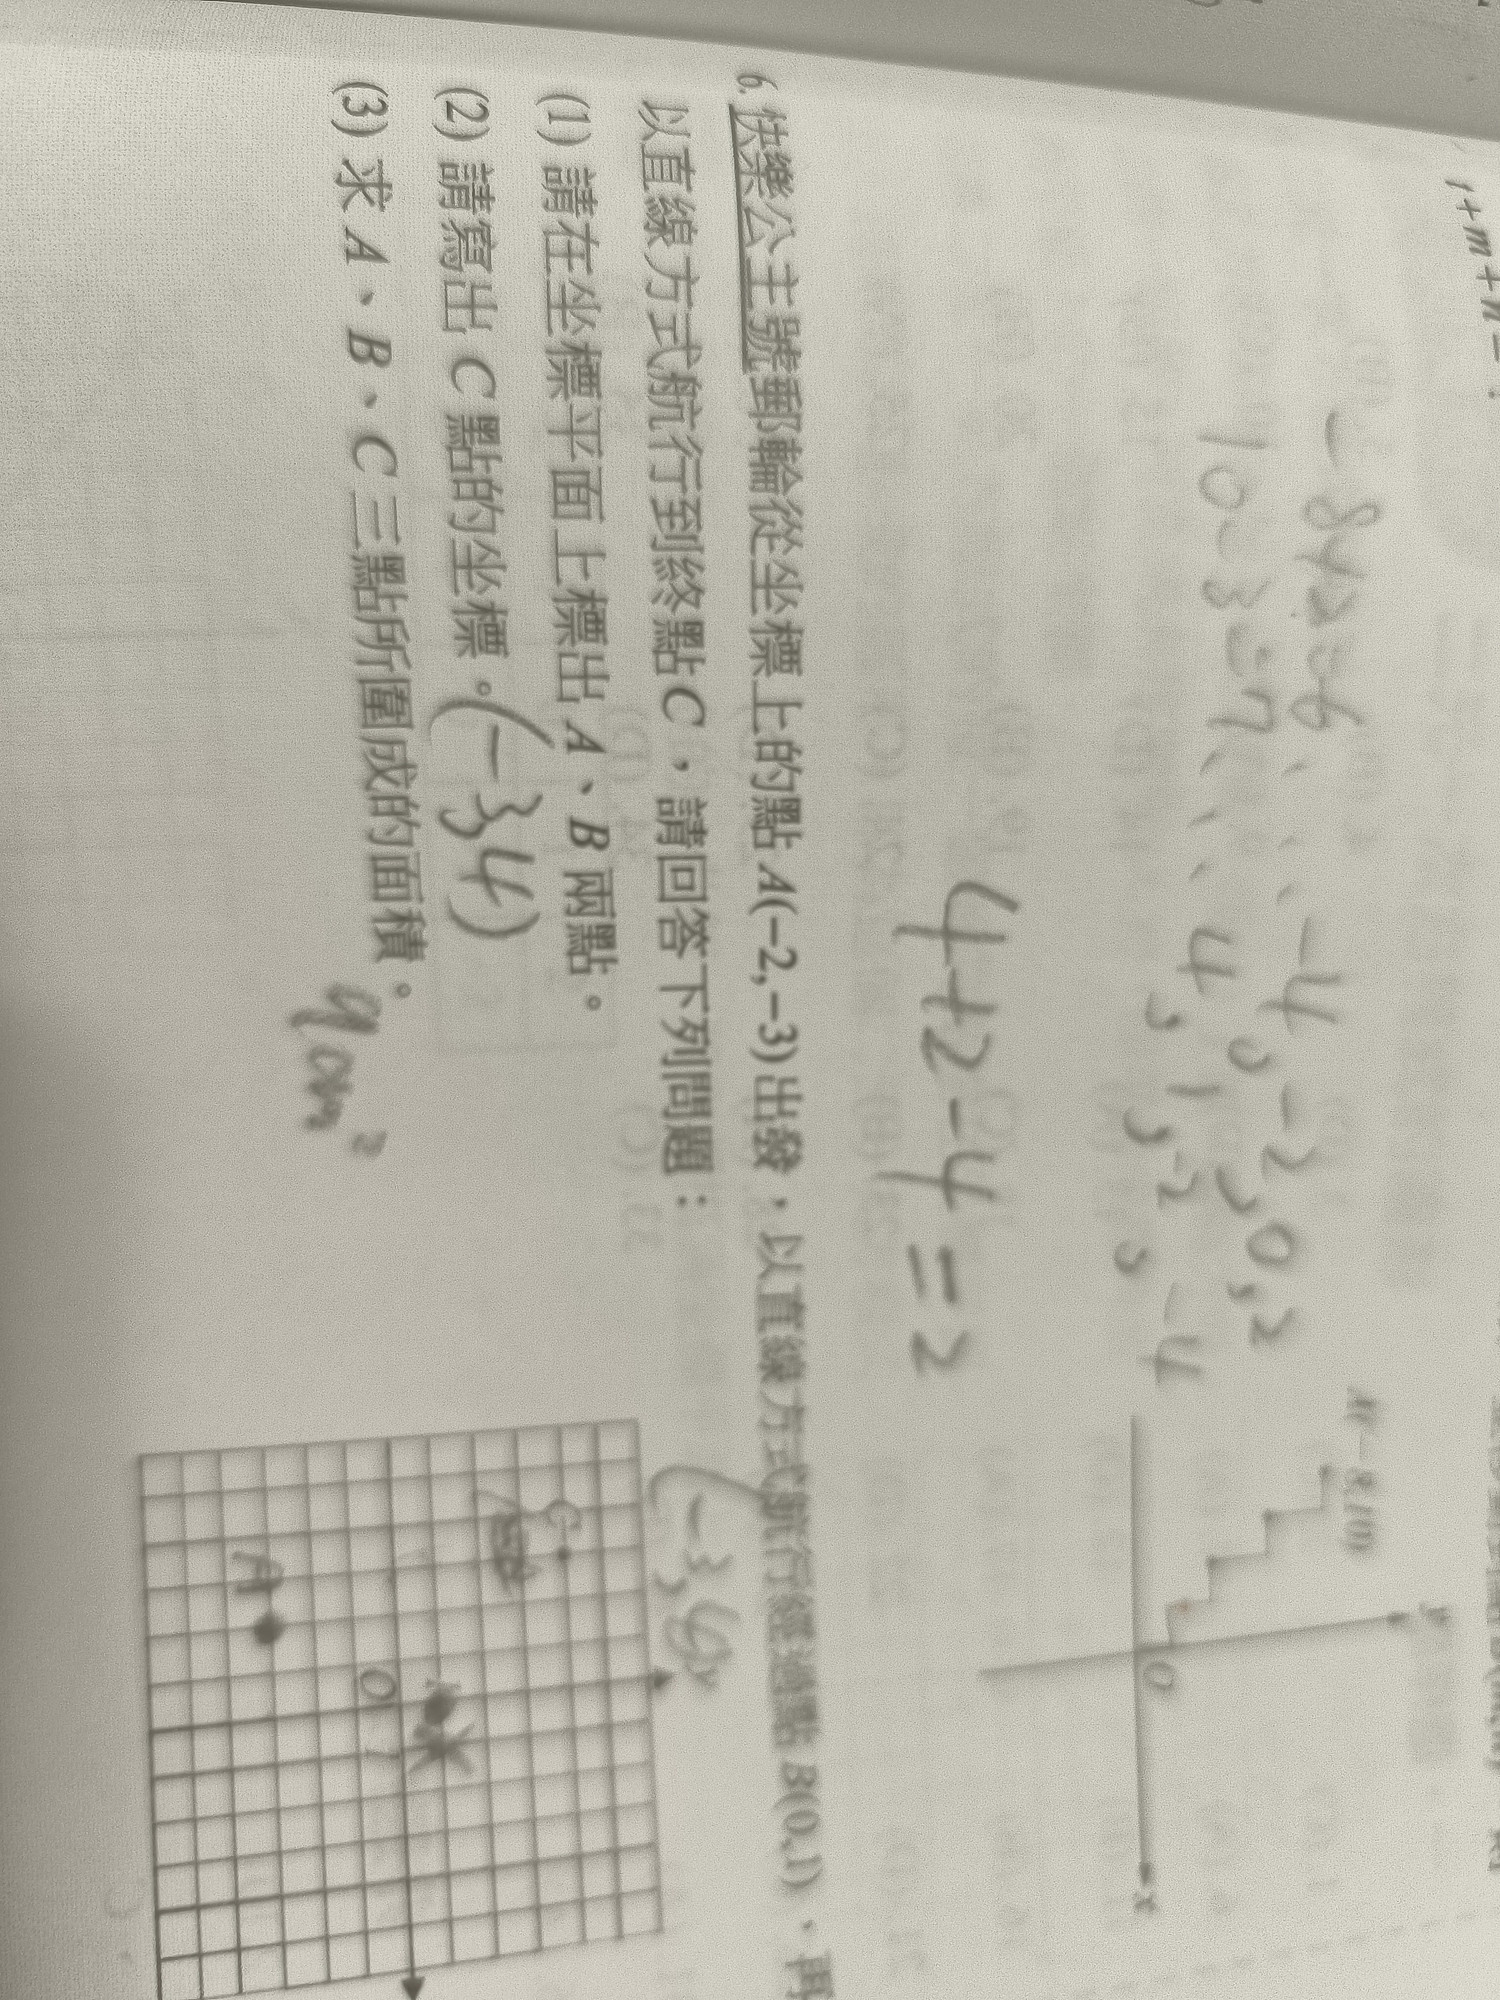 1+m+n=:
-8+2=-6、、、-4、-2、0,2
10-3=7、、、4,1,-2,-4
y
O
x
4+2-4=2
6. 快樂公主號郵輪從坐標上的點 A(−2,−3) 出發，以直線方式航行經過點 B(0,1)、再
以直線方式航行到終點 C，請回答下列問題：
(1) 請在坐標平面上標出 A、B 兩點。
(2) 請寫出 C 點的坐標。(-3,4)
(3) 求 A、B、C 三點所圍成的面積。
(-3,4)
y
C
A
O 1